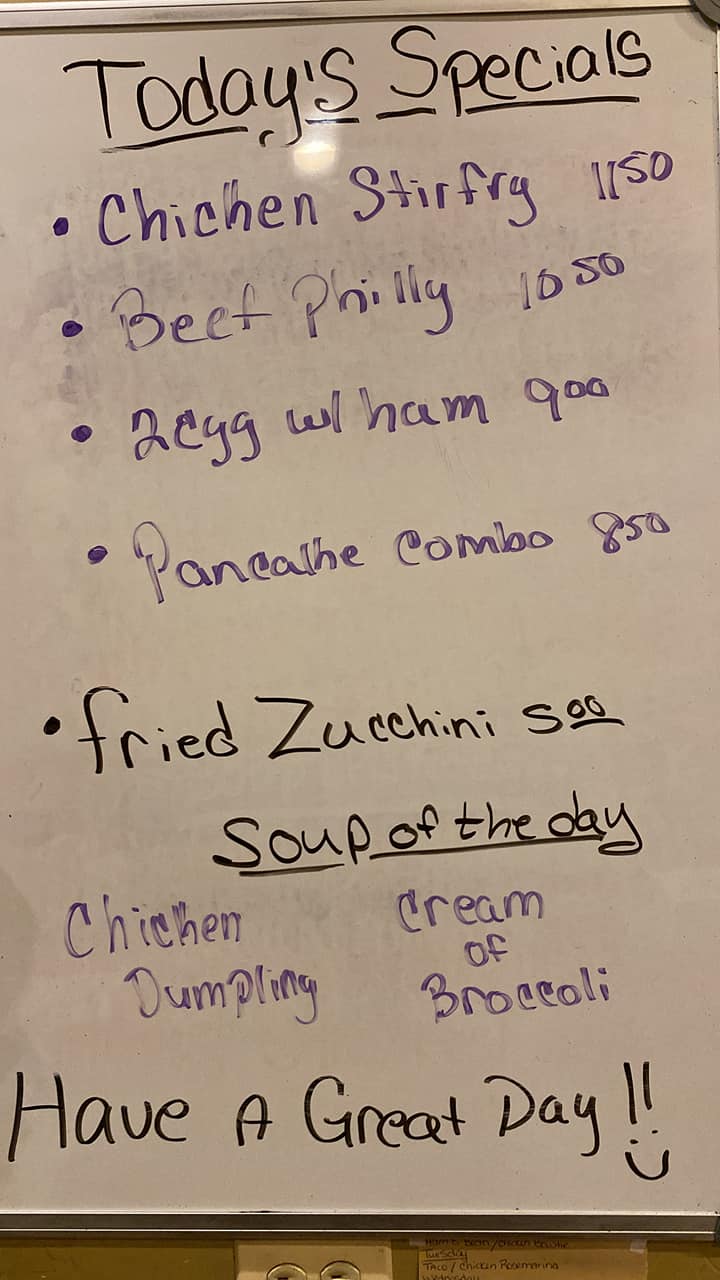 Today's Specials
• Chicken Stirfry 1150
• Beef Philly 1050
• 2egg w/ ham 900
• Pancake Combo 850
• fried Zucchini 500
Soup of the day
Chicken
Dumpling
Cream
of
Broccoli
Have A Great Day !!
Tuesday
Taco / Chicken